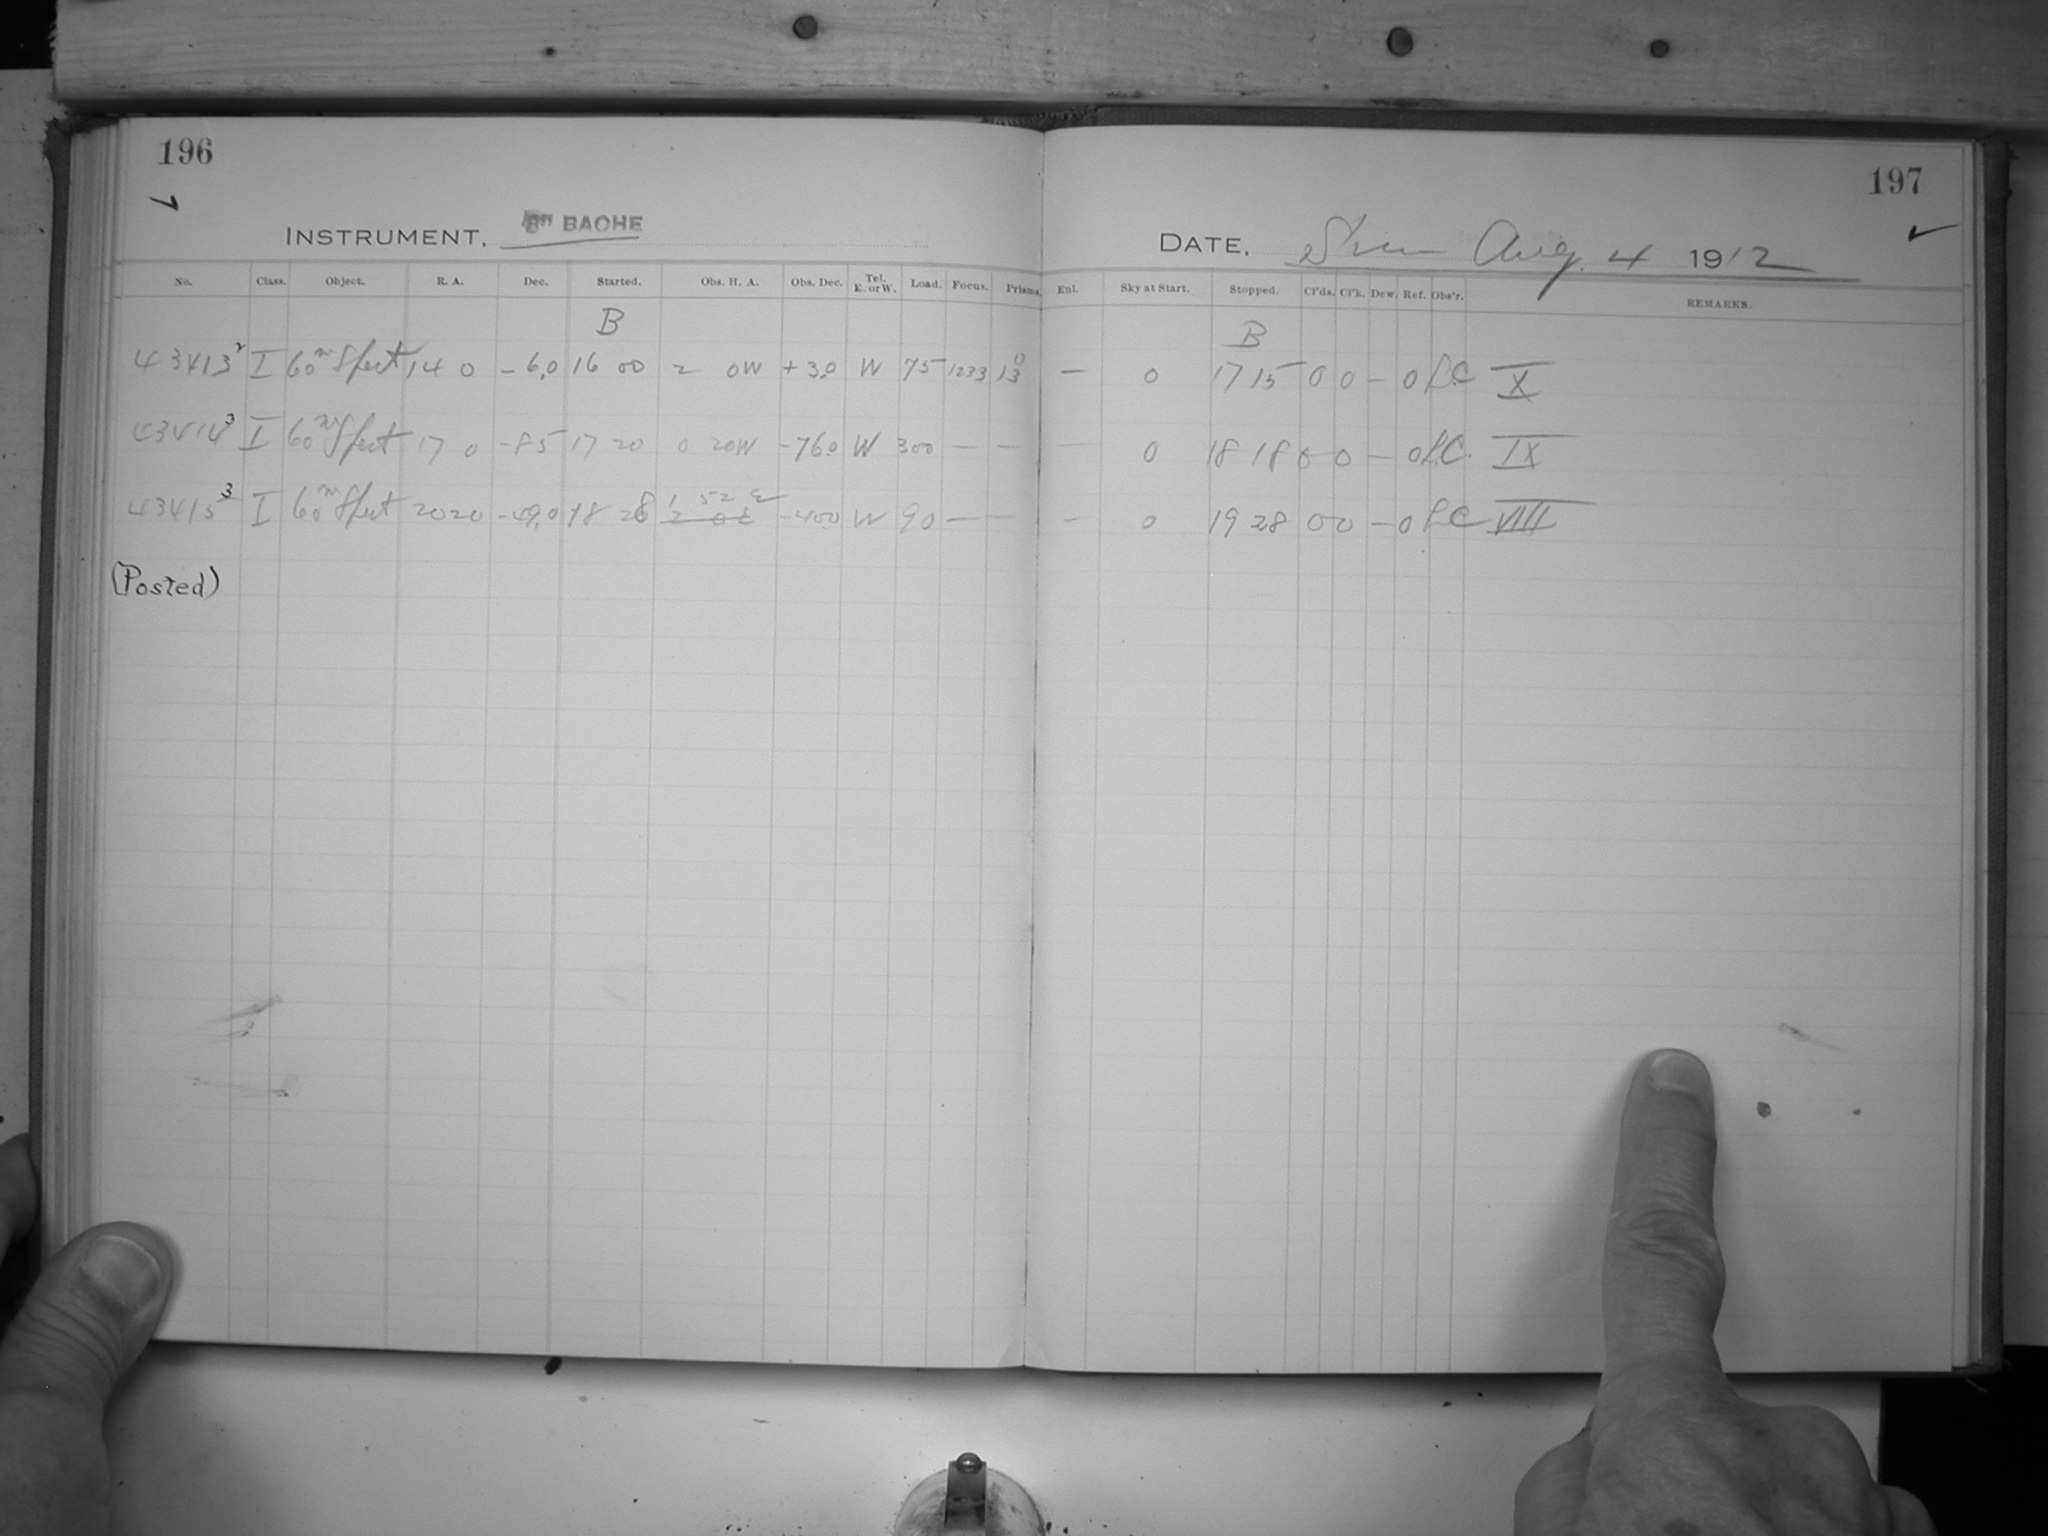 196
197
INSTRUMENT, 8" BACHE
DATE, Sun Aug. 4 1912
No. Class. Object. R. A. Dec. Started. Obs. H. A. Obs. Dec. Tel. E. or W. Load. Focus. Prisms. Enl. Sky at Start. Stopped. Cl'ds. Cl'k. Dew. Ref. Obs'r. REMARKS.
B B
43413² I 60ᵐ Spect 14 0 -6.0 16 00 2 0W +3.0 W 75 1233 13 0 — 0 17 15 0 0 — 0 X
43414³ I 60ᵐ Spect 17 0 -85 17 20 0 20W -76.0 W 300 — — — 0 18 18 0 0 — 0 IX
43415³ I 60ᵐ Spect 20 20 -49.0 18 28 1 52 E -40.0 W 90 — — — 0 19 28 0 0 — 0 VIII
(Posted)